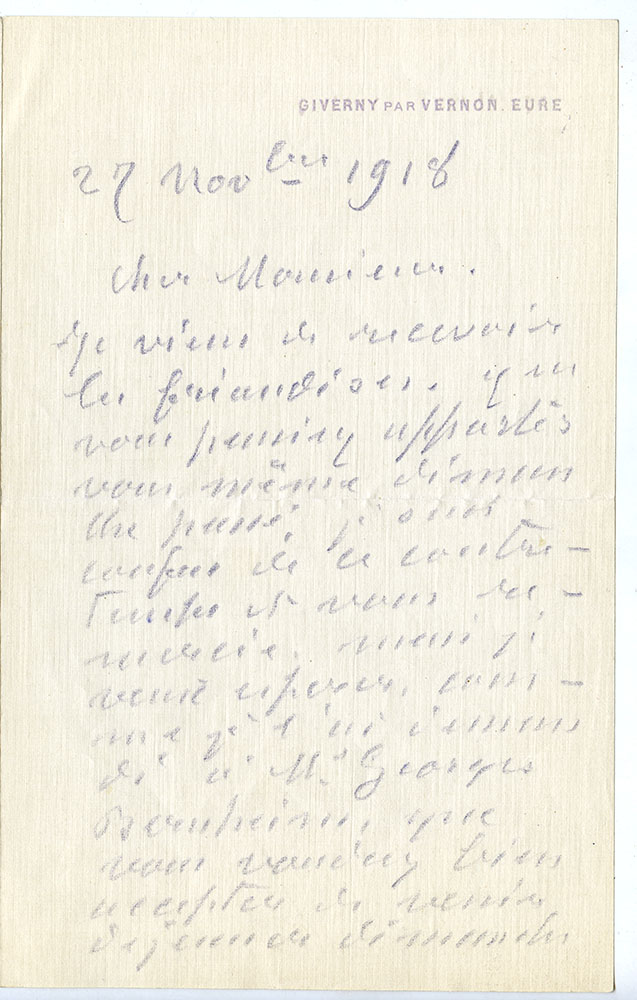 GIVERNY PAR VERNON. EURE
27 Novbre 1918
Cher Monsieur.
Je viens de recevoir
les friandises. que
vous pensiez apporter
vous même diman
che passé, je suis
confus de ce contre-
temps et vous re-
mercie. mais je
veux espérer, com-
me je l'ai deman
dé à Mr Georges
Bernheim, que
vous voudrez bien
accepter de venir
dejeuner dimanche